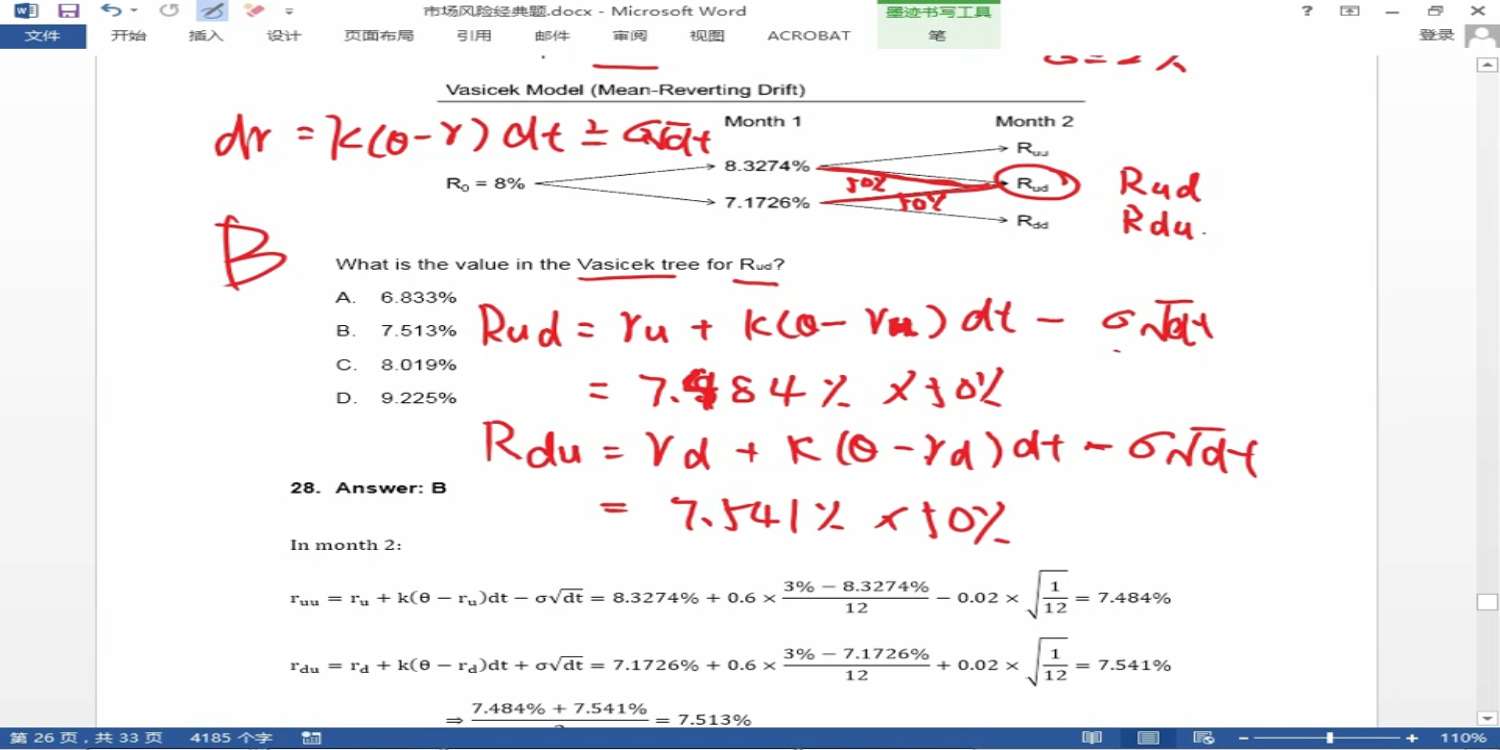 市场风险经典题.docx - Microsoft Word
墨迹书写工具
文件 开始 插入 设计 页面布局 引用 邮件 审阅 视图 ACROBAT 笔 登录
Vasicek Model (Mean-Reverting Drift)
dr = k(θ-r)dt ± σ√dt
Month 1 Month 2
R₀ = 8%
8.3274%
7.1726%
50%
50%
Ruu
Rud
Rdd
Rud
Rdu.
B
What is the value in the Vasicek tree for Rud?
A. 6.833%
B. 7.513%
C. 8.019%
D. 9.225%
Rud = ru + k(θ-ru)dt - σ√dt
= 7.484% × 50%
Rdu = rd + k(θ-rd)dt - σ√dt
= 7.541% × 50%
28. Answer: B
In month 2:
ruu = ru + k(θ − ru)dt − σ√dt = 8.3274% + 0.6 × (3% − 8.3274%)/12 − 0.02 × √(1/12) = 7.484%
rdu = rd + k(θ − rd)dt + σ√dt = 7.1726% + 0.6 × (3% − 7.1726%)/12 + 0.02 × √(1/12) = 7.541%
⇒ (7.484% + 7.541%)/2 = 7.513%
第 26 页，共 33 页 4185 个字 110%